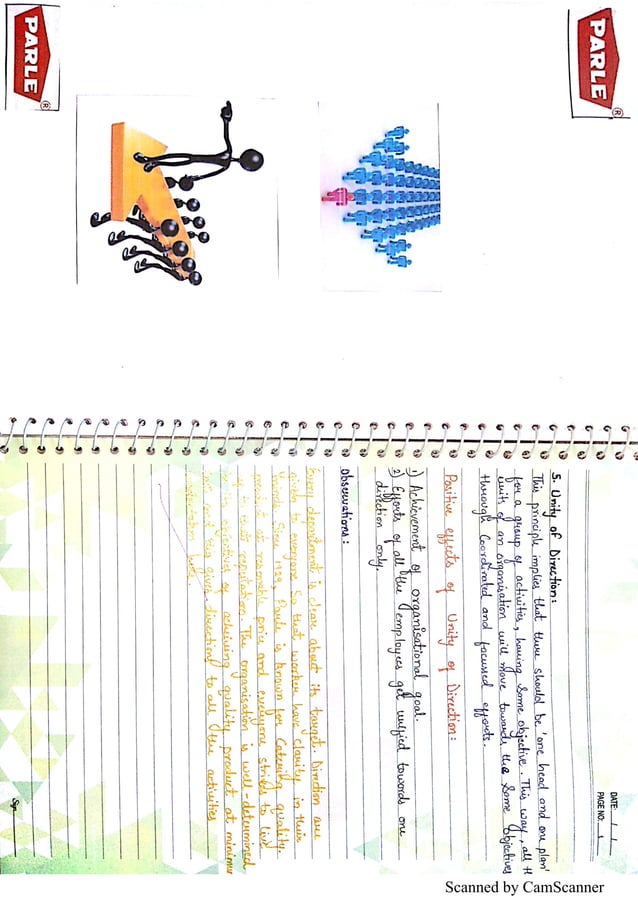 PARLE ®
PARLE ®
DATE: / /
PAGE NO: 1
5. Unity of Direction:
This principle implies that there should be 'one head and one plan'
for a group of activities, having some objective. This way, all th
units of an organisation will move towards the same objectives
through Coordinated and focused efforts.
Positive effects of Unity of Direction:
1) Achievement of organisational goal.
2) Efforts of all the employees get unified towards one
direction only.
Observations:
Every department is clear about its target. Direction are
given to everyone so that worker have clarity in their
Since 1929, Parle is known for Catering quality.
product at reasonable price and everyone strikes to
reputation. The organisation is well-determined
objective of achieving quality product at minimum
giving direction to all the activities
Sign
Scanned by CamScanner